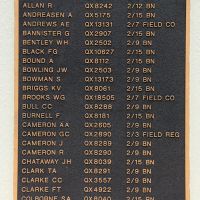 ALLAN R QX8242 2/12 BN
ANDREASEN A QX5175 2/15 BN
ANDREWS AE QX13131 2/7 FIELD CO
BANNISTER G QX2907 2/15 BN
BENTLEY WH QX2502 2/9 BN
BLACK FG QX10627 2/15 BN
BOUND A QX8112 2/15 BN
BOWLING JW QX2503 2/9 BN
BOWMAN S QX13173 2/9 BN
BRIGGS KV QX8061 2/15 BN
BROOKS WG QX18505 2/7 FIELD CO
BULL CC QX8288 2/9 BN
BURNELL F QX8181 2/15 BN
CAMERON AA QX2605 2/9 BN
CAMERON GC QX2890 2/3 FIELD REG
CAMERON J QX8289 2/9 BN
CAMERON R QX8290 2/9 BN
CHATAWAY JH QX8039 2/15 BN
CLARK TA QX8291 2/9 BN
CLARKE CC QX3557 2/9 BN
CLARKE FT QX4922 2/9 BN
COLBORNE SA QX8040 2/15 BN